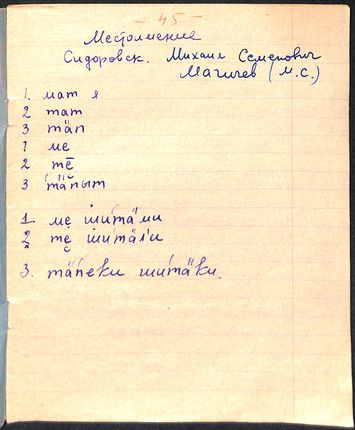 - 45 -
Местоимение
Сидоровск. Михаил Семенович
Магичев (М.С.)
1. мат я
2 тат
3 тӓп
1 ме
2 тē
3 тӓпыт
1. ме шитӓми
2 те шитӓли
3. тӓпеки шитӓки